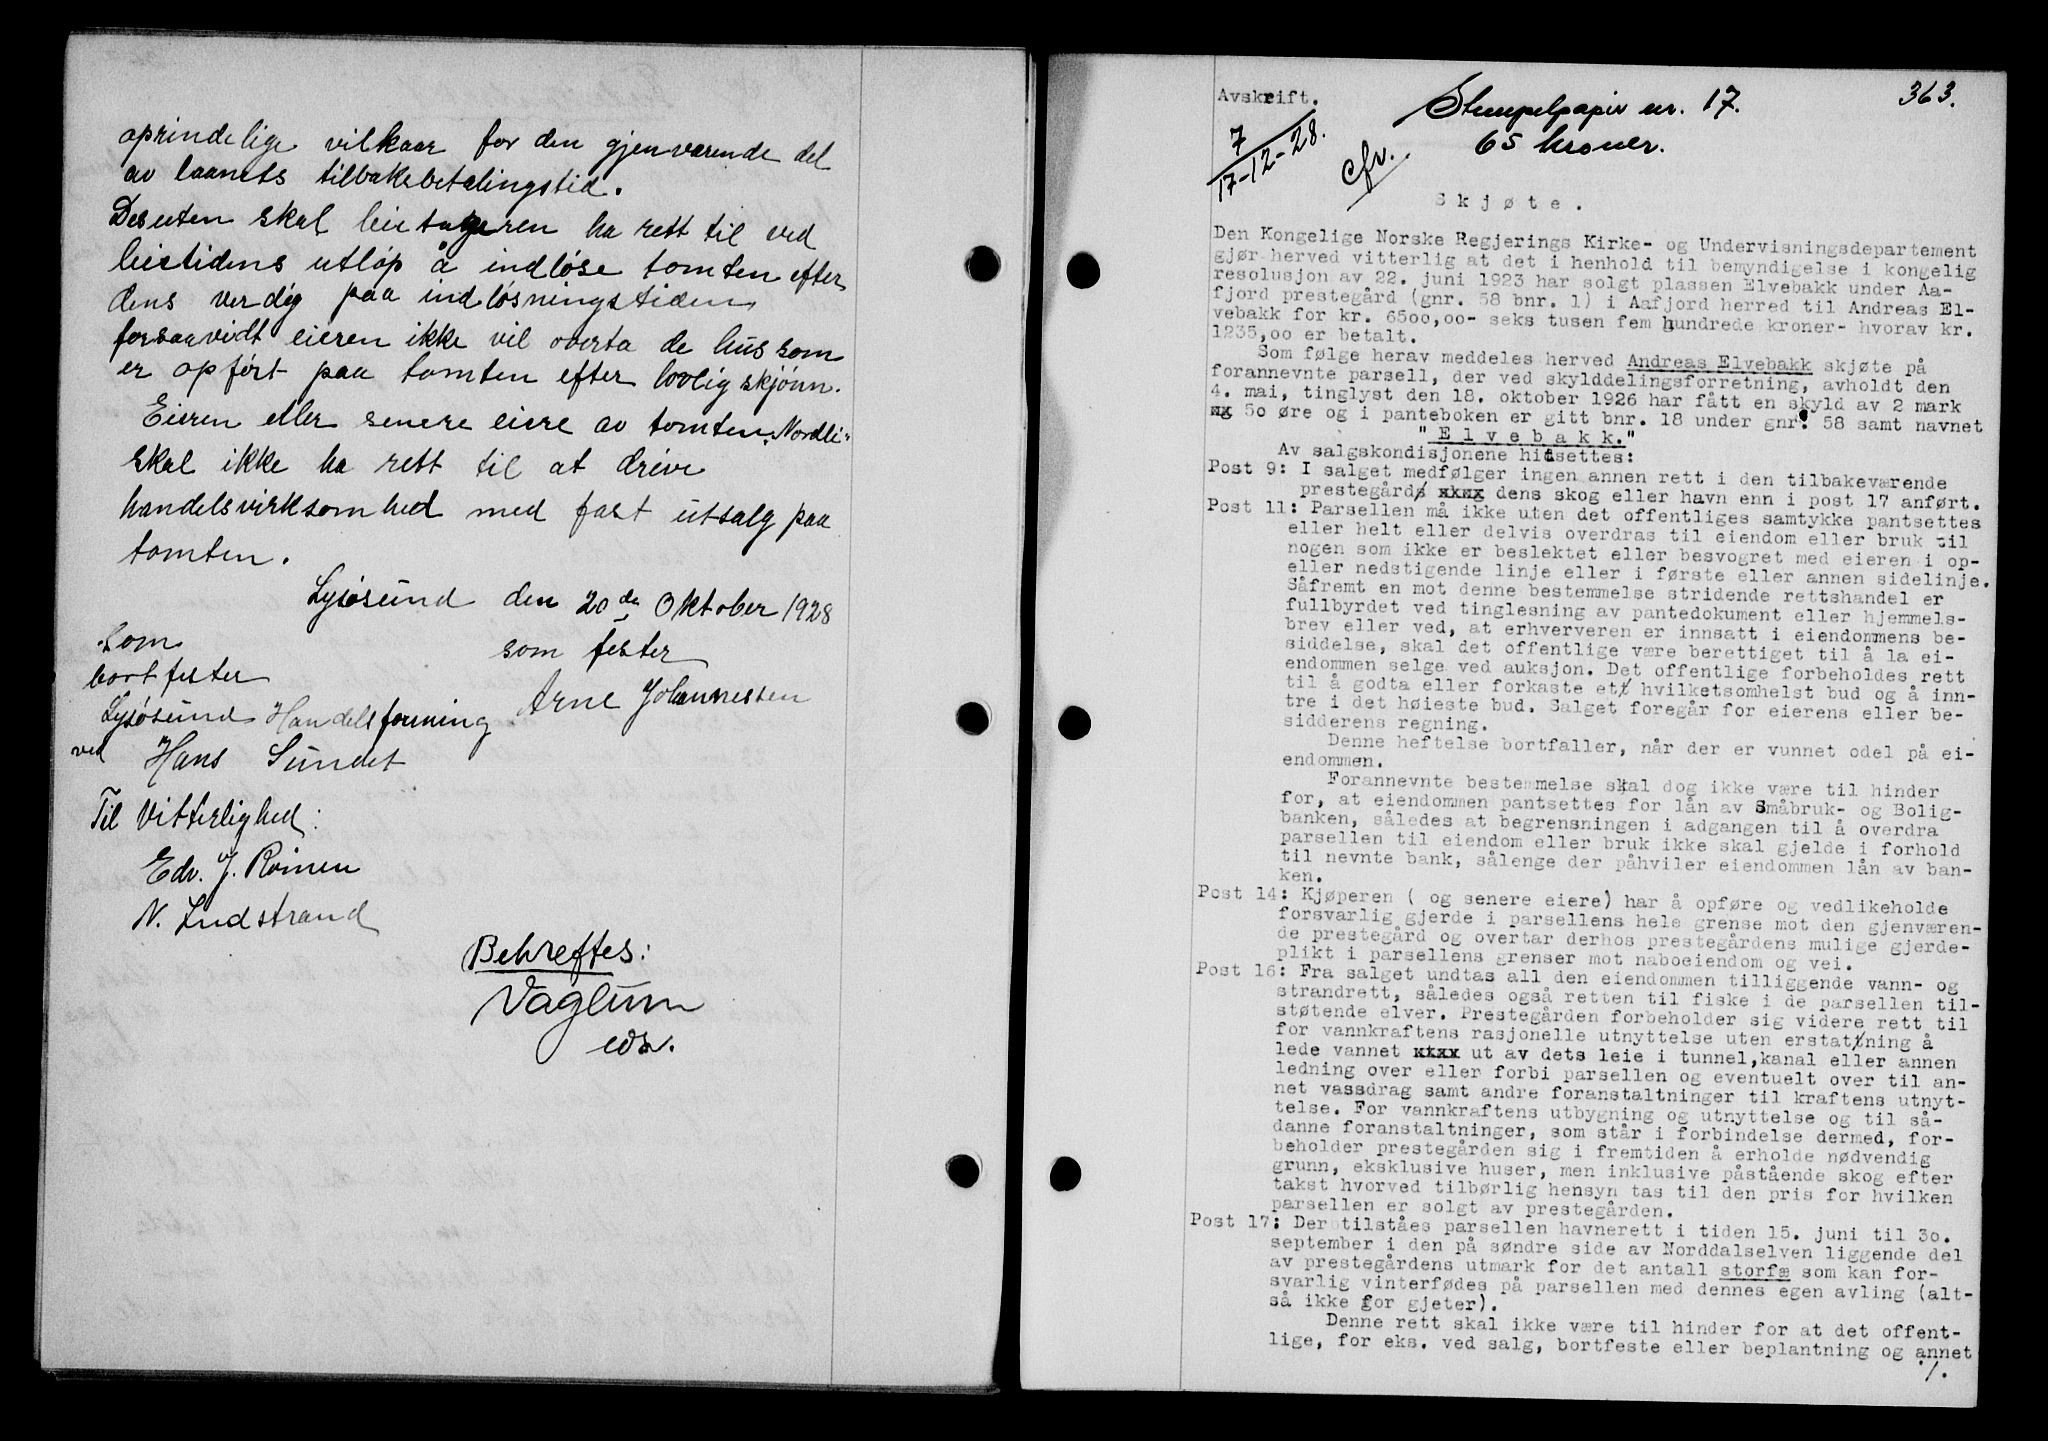 oprindelige vilkaar for den gjenværende del
av laanets tilbakebetalingstid.
Desuten skal leietageren ha rett til ved
leietidens utløp å indløse tomten efter
dens verdig paa indløsningstiden
forsaavidt eieren ikke vil overta de hus som
er opført paa tomten efter lovlig skjønn.
Eieren eller senere eiere av tomten "Nordli"
skal ikke ha rett til at drive
handelsvirksomhed med fast utsalg paa
tomten.
Lysøsund den 20de Oktober 1928
som
bortfester
som fester
Arne Johannessen
Lysøsund Handelsforening
ved Hans Sundet
Til Vitterlighed:
Edv. J. Roinen
N. Indstrand
Bekreftes:
Vaglum
eds.
Avskrift.
Stempelpapir nr. 17.
363.
65 kroner.
7
17-12-28.
cfr.
Skjøte.
Den Kongelige Norske Regjerings Kirke- og Undervisningsdepartement
gjør herved vitterlig at det i henhold til bemyndigelse i kongelig
resolusjon av 22. juni 1923 har solgt plassen Elvebakk under Aa-
fjord prestegård (gnr. 58 bnr. 1) i Aafjord herred til Andreas El-
vebakk for kr. 6500,00- seks tusen fem hundrede kroner- hvorav kr.
1235,00 er betalt.
Som følge herav meddeles herved Andreas Elvebakk skjøte på
forannevnte parsell, der ved skylddelingsforretning, avholdt den
4. mai, tinglyst den 18. oktober 1926 har fått en skyld av 2 mark
50 øre og i panteboken er gitt bnr. 18 under gnr. 58 samt navnet
"Elvebakk."
Av salgskondisjonene hidsettes:
Post 9: I salget medfølger ingen annen rett i den tilbakeværende
prestegård xxxx dens skog eller havn enn i post 17 anført.
Post 11: Parsellen må ikke uten det offentliges samtykke pantsettes
eller helt eller delvis overdras til eiendom eller bruk til
nogen som ikke er beslektet eller besvogret med eieren i op-
eller nedstigende linje eller i første eller annen sidelinje.
Såfremt en mot denne bestemmelse stridende rettshandel er
fullbyrdet ved tinglesning av pantedokument eller hjemmels-
brev eller ved, at erhververen er innsatt i eiendommens be-
siddelse, skal det offentlige være berettiget til å la ei-
endommen selge ved auksjon. Det offentlige forbeholdes rett
til å godta eller forkaste et hvilketsomhelst bud og å inn-
tre i det høieste bud. Salget foregår for eierens eller be-
sidderens regning.
Denne heftelse bortfaller, når der er vunnet odel på ei-
endommen.
Forannevnte bestemmelse skal dog ikke være til hinder
for, at eiendommen pantsettes for lån av Småbruk- og Bolig-
banken, således at begrensningen i adgangen til å overdra
parsellen til eiendom eller bruk ikke skal gjelde i forhold
til nevnte bank, sålenge der påhviler eiendommen lån av ban-
ken.
Post 14: Kjøperen ( og senere eiere) har å opføre og vedlikeholde
forsvarlig gjerde i parsellens hele grense mot den gjenværen-
de prestegård og overtar derhos prestegårdens mulige gjerde-
plikt i parsellens grenser mot naboeiendom og vei.
Post 16: Fra salget undtas all den eiendommen tilliggende vann- og
strandrett, således også retten til fiske i de parsellen til-
støtende elver. Prestegården forbeholder sig videre rett til
for vannkraftens rasjonelle utnyttelse uten erstatning å
lede vannet xxxx ut av dets leie i tunnel,kanal eller annen
ledning over eller forbi parsellen og eventuelt over til an-
net vassdrag samt andre foranstaltninger til kraftens utnyt-
telse. For vannkraftens utbygning og utnyttelse og til så-
danne foranstaltninger, som står i forbindelse dermed, for-
beholder prestegården sig i fremtiden å erholde nødvendig
grunn, eksklusive huser, men inklusive påstående skog efter
takst hvorved tilbørlig hensyn tas til den pris for hvilken
parsellen er solgt av prestegården.
Post 17: Der tilståes parsellen havnerett i tiden 15. juni til 30.
september i den på søndre side av Norddalselven liggende del
av prestegårdens utmark for det antall storfæ som kan for-
svarlig vinterfødes på parsellen med dennes egen avling (alt-
så ikke for gjeter).
Denne rett skal ikke være til hinder for at det offent-
lige, for eks. ved salg, bortfeste eller beplantning og annet
./.